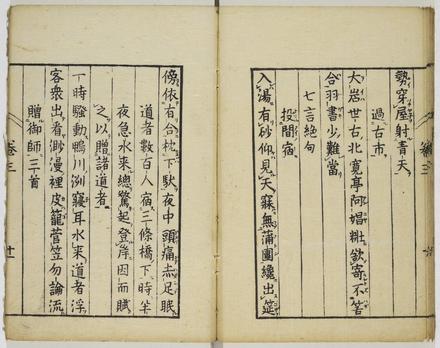 勢穿屋射青天
過古市
大岩世古北寛亭阿娼粧歓寄不答
合羽書少難當
七言絶句
投間宿
入湯有砂仰見天寐無蒲團纔出筵
傍依有合枕下馱夜中頭痛赤足眠
道者數百人宿三條橋下時半
夜急水来總驚起登岸因而賦
之以贈諸道者
一時騒動鴨川洌寢耳水来道者浮
客衆出看渺漫裡皮籠菅笠勿論流
贈御師三首
卷三
十一